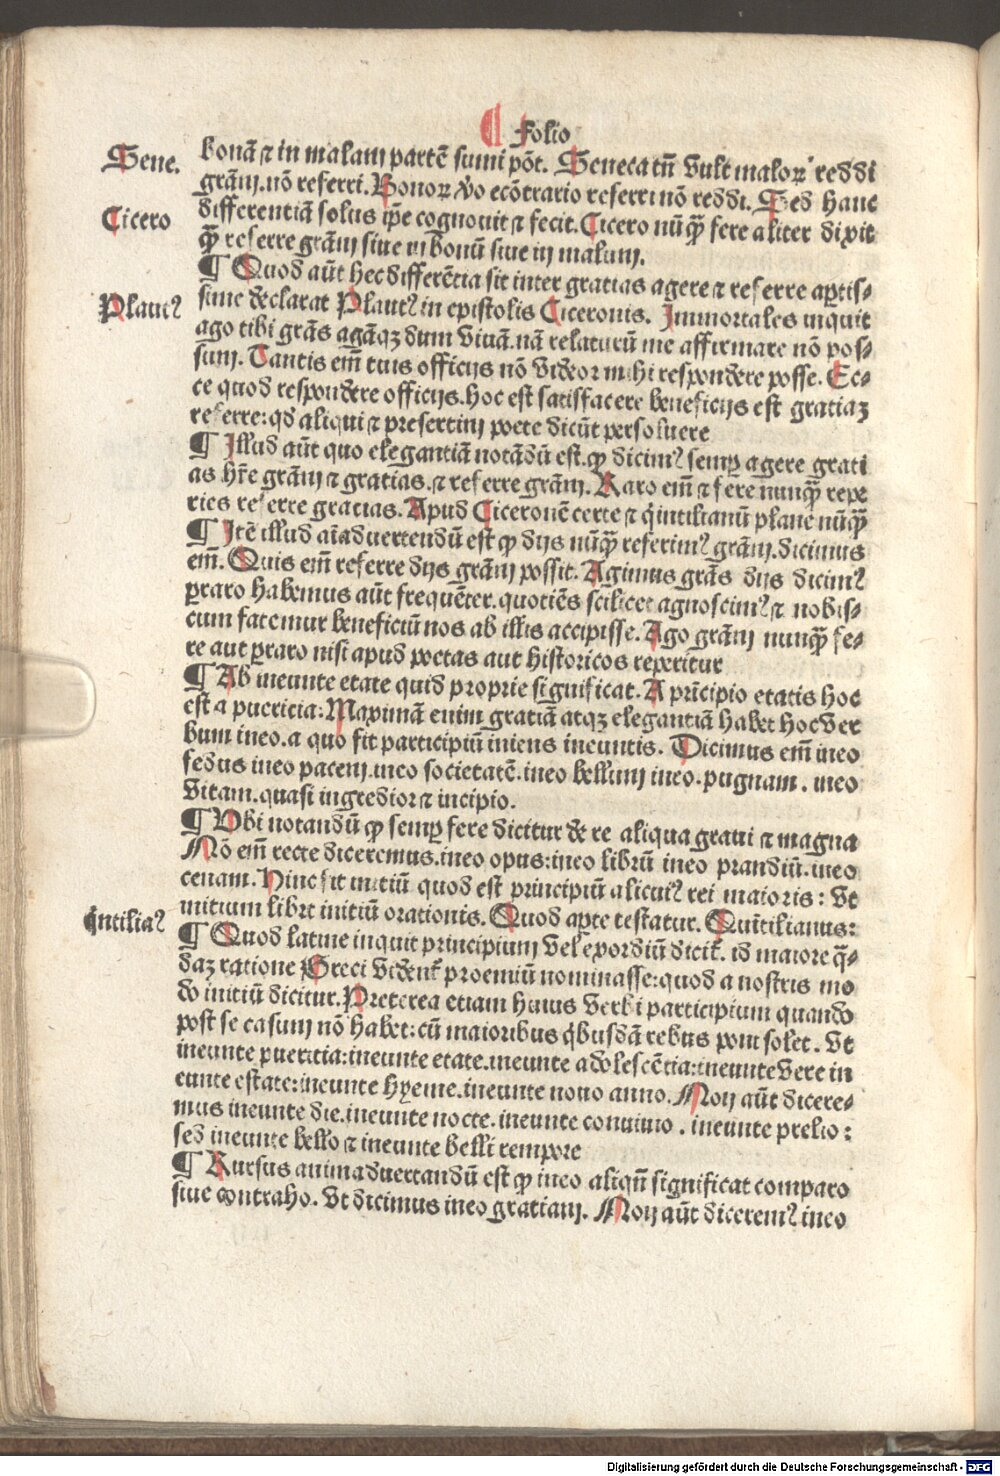 ¶ Folio
Sene.
bonā ⁊ in malam partē sumi pōt. Seneca tn̄ vult maloꝝ reddi
grām. nō referri. Bonoꝝ v̊o ecōtrario referri nō reddi. Sed hanc
Cicero
differentiā solus ip̄e cognouit ⁊ fecit. Cicero nūq̄ꝫ fere aliter dixit
q̄ꝫ referre grām siue in bonū siue in malum.
¶ Quod aūt hec differētia sit inter gratias agere ⁊ referre aptis⸗
Plautꝰ
sime declarat Plautꝰ in epistolis Ciceronis. Immortales inquit
ago tibi grās agāqꝫ dum viuā. nā relaturū me affirmare nō pos⸗
sum. Tantis em̄ tuis officijs nō videor mihi respondere posse. Ec⸗
ce quod respondere officijs. hoc est satisfacere beneficijs est gratiaꝫ
referre: qd aliqui ⁊ presertim poete dicūt persoluere
¶ Illud aūt quo elegantiā notādū est. ꝙ dicimꝰ semꝑ agere grati
as hr̄e grām ⁊ gratias. ⁊ referre grām. Raro em̄ ⁊ fere nunq̄ꝫ repe
ries referre gratias. Apud Ciceronē certe ⁊ q̇intilianū plane nūq̄ꝫ
¶ Itē illud aīaduertendū est ꝙ dijs nūq̄ꝫ referimꝰ grām. dicimus
em̄. Quis em̄ referre dijs grām possit. Agimus grās dijs dicimꝰ
ꝑraro habemus aūt frequēter. quotiēs scilicet agnoscimꝰ ⁊ nobis⸗
cum fatemur beneficiū nos ab illis accipisse. Ago grām nunq̄ꝫ fe⸗
re aut ꝑraro nisi apud poetas aut historicos reperitur
¶ Ab ineunte etate quid proprie significat. A prīcipio etatis hoc
est a puericia: Maximā enim gratiā atqꝫ elegantiā habet hoc ver
bum ineo. a quo fit participiū iniens ineuntis. Dicimus em̄ ineo
fedus ineo pacem. ineo societatē. ineo bellum ineo. pugnam. ineo
vitam. quasi ingredior ⁊ incipio.
¶ Ubi notandū ꝙ semꝑ fere dicitur de re aliqua graui ⁊ magna
Nō em̄ recte diceremus. ineo opus: ineo librū ineo prandiū. ineo
cenam. Hinc fit initiū quod est principiū alicuiꝰ rei maioris: vt
q̇ntiliaꝰ
initium libri initiū orationis. Quod apte testatur. Quītilianus:
¶ Quod latine inquit principium vel exordiū dicit᷑. id maiore q̄⸗
daꝫ ratione Greci vident᷑ proemiū nominasse: quod a nostris mo
do initiū dicitur. Preterea etiam huius verbi participium quando
post se casum nō habet: cū maioribus q̇busdā rebus poni solet. vt
ineunte pueritia: ineunte etate. ineunte adolescētia: ineunte vere in
eunte estate: ineunte hyeme. ineunte nouo anno. Non aūt dicere⸗
mus ineunte die. ineunte nocte. ineunte conuiuio. ineunte prelio:
sed ineunte bello ⁊ ineunte belli tempore
¶ Rursus animaduertandū est ꝙ ineo aliqn̄ significat comparo
siue contraho. vt dicimus ineo gratiam. Non aūt diceremꝰ ineo
Digitalisierung gefördert durch die Deutsche Forschungsgemeinschaft - DFG